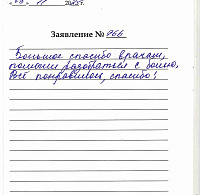 11 2025 г.
Заявление № 966
Большое спасибо врачам,
помогли разобраться с болью.
Всё понравилось, спасибо!